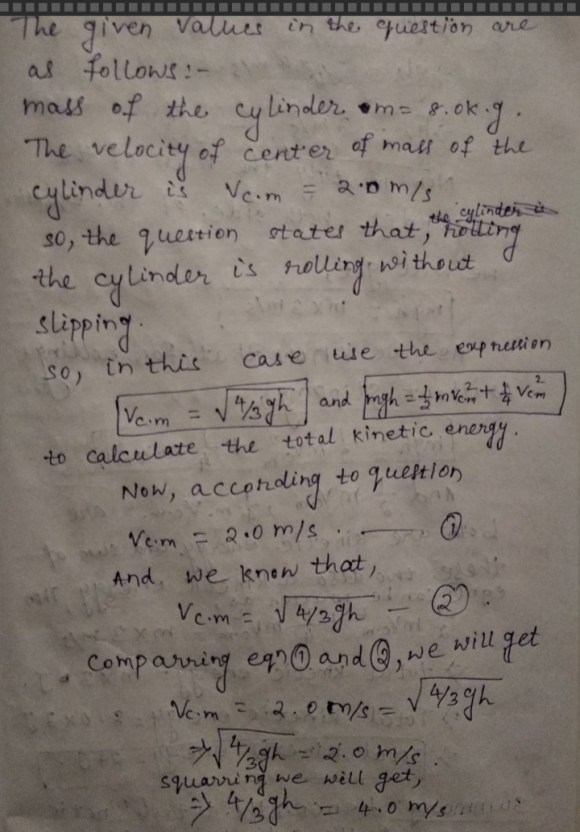 The given values in the question are
as follows:-
mass of the cylinder m = 8.0k.g.
The velocity of center of mass of the
cylinder is Vc.m = 2.0 m/s
so, the question states that, the cylinder is rolling
the cylinder is rolling without
slipping.
so, in this case use the expression
Vc.m = √4/3gh and mgh = 1/2 mvcm² + 1/4 Vcm²
to calculate the total kinetic energy.
Now, according to question
Vc.m = 2.0 m/s . — ①
And, we know that,
Vc.m = √4/3gh — ② .
comparring eqn ① and ②, we will get
Vc.m = 2.0 m/s = √4/3gh
⇒ √4/3gh = 2.0 m/s .
squarring we will get,
⇒ 4/3gh = 4.0 m/s .